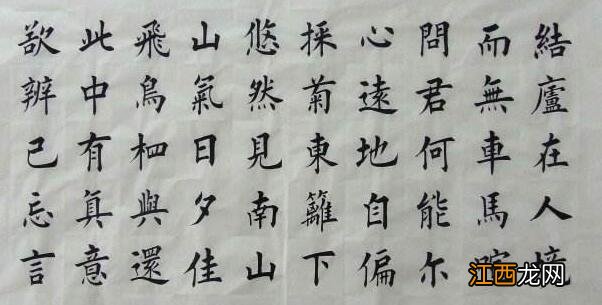 結廬在人境
而無車馬喧
問君何能尔
心遠地自偏
採菊東籬下
悠然見南山
山氣日夕佳
飛鳥相與還
此中有真意
欲辨已忘言
江西龙网